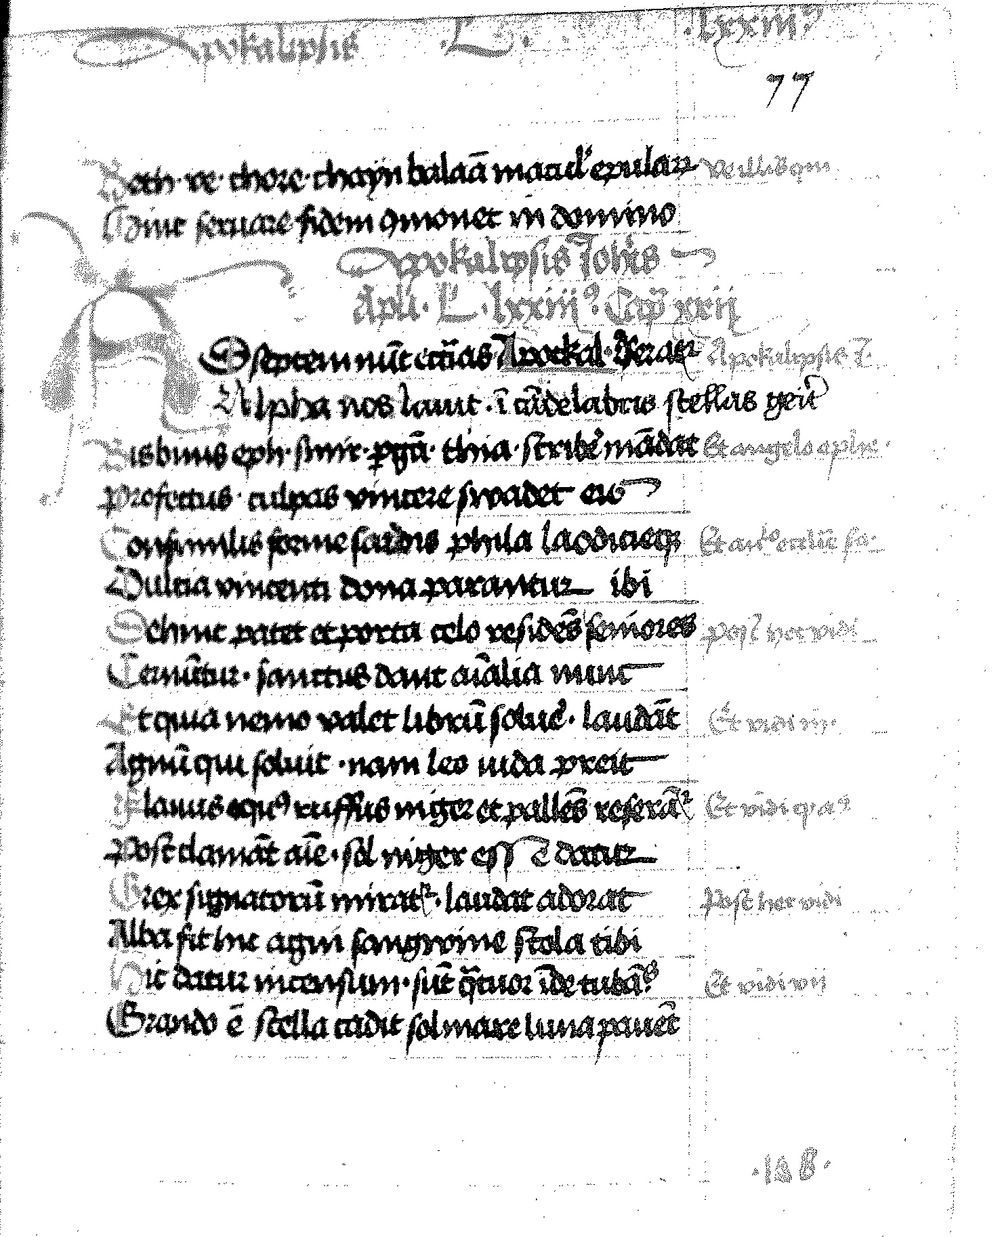 Apokalipsis L. lxxiiij
77
Beth ve chore chayn balaā macul' epulan ve illis qui
Hinc seruare fidem ꝯmonet in domino
Apokalipsis Joh'is
Apli L lxxiiij Cap xxij
septem nūc Apockal Apokalipsis
Alpha nos lauit ī cādelabris stellas
Bis binus eph smir pgā thia scribe mādat Et angelo ephe
Profectus culpas vincere swadet eis
Consimilis forme sardis phila laodicieqꝫ Et an ecclīe sa
Dulcia vincenti dona parantur ibi
Dehinc patet et porta celo residēs seniores post hec vidi
Cernūtur sanctus dant aīalia nunc
Et quia nemo valet librū solue laudāt Et vidi in
Agnū qui soluit nam leo iuda preit
Flauus equꝰ ruffus niger et pallēs referāt Et vidi
Post clamāt aīe sol niger datur
Grex signatorū mirat laudat adorat Post hec vidi
Alba fit hic agni sangwine stola tibi
Hic datur incensum sūt qtuor īde tubā Et vidi vii
Grando ē stella cadit sol mare luna pauēt
188